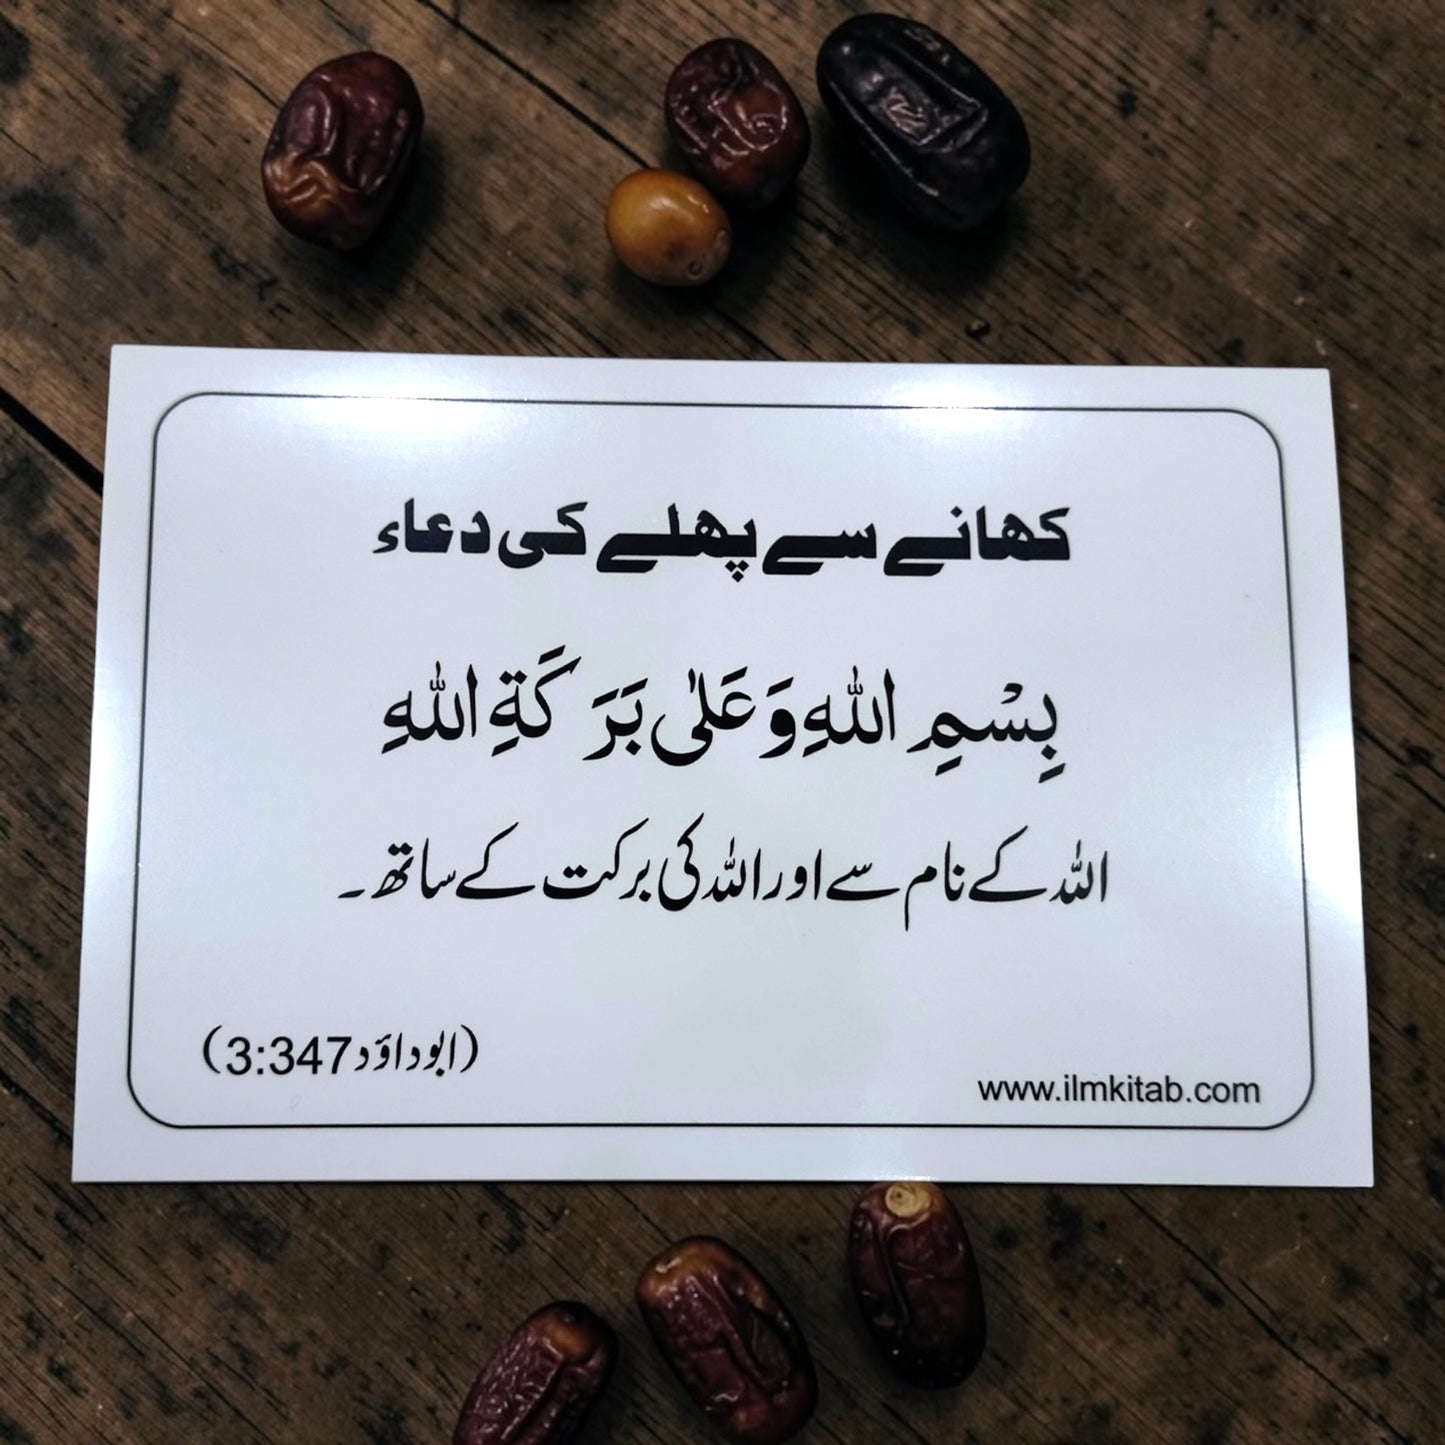 کھانے سے پھلے کی دعاء
بِسْمِ اللّٰهِ وَعَلٰی بَرَكَةِ اللّٰهِ
اللہ کے نام سے اور اللہ کی برکت کے ساتھ۔
(ابوداؤد3:347)
www.ilmkitab.com